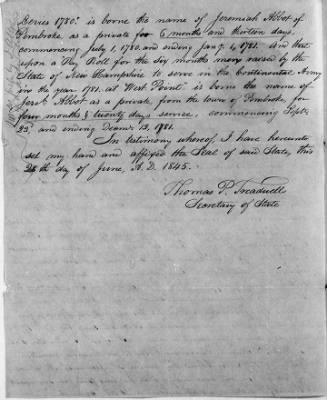 Service 1780." is borne the name of Jeremiah Abbot of
Pembroke, as a private for 6 months and thirteen days,
commencing July 1, 1780, and ending Jany. 4, 1781. And that
upon a Pay Roll for the Six months men raised by the
State of New Hampshire to serve in the Continental Army
in the year 1781, at West Point, is borne the name of
Jere.h Abbot as a private, from the town of Pembroke, for
four months & twenty days service, commencing Sept.
23d and ending Decem. 13, 1781.
In testimony whereof, I have hereunto
set my hand and affixed the Seal of said State, this
day of June, A.D. 1845.
Thomas P. Treadwell
Secretary of State